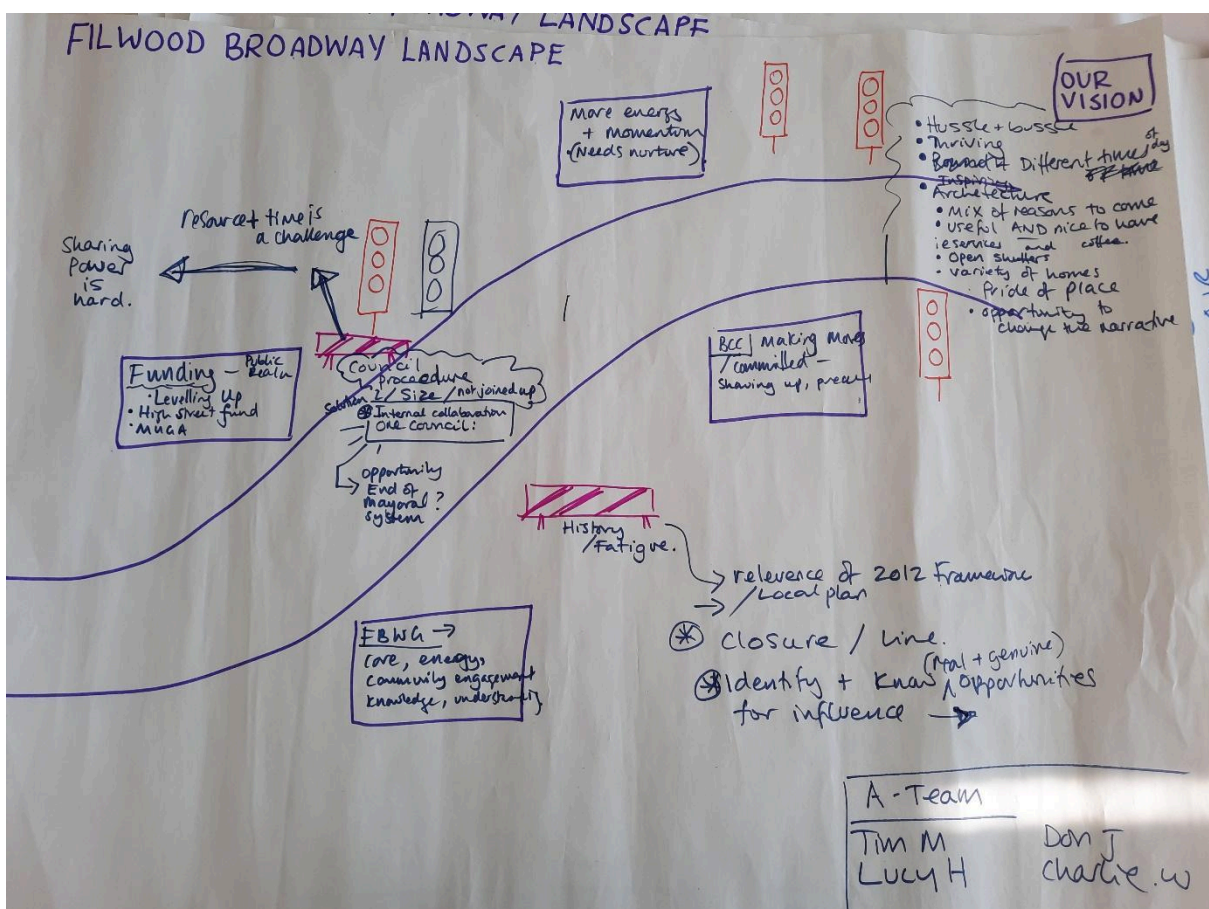 ADWAY LANDSCAPE
FILWOOD BROADWAY LANDSCAPE
OUR
VISION
More energy
+ Momentum
(Needs nurture)
• Hussle + bussle
• Thriving
• Different times of day
Inspiring
• Archetecture
• Mix of reasons to come
• useful AND nice to have
ie services and coffee.
• Open shutters
• variety of homes
• Pride of place
• opportunity to
change the narrative
resource + time is
a challenge
Sharing
Power
is
hard.
Funding — Public
Realm
• Levelling Up
• High street fund
• MUGA
Council
proceedure
/ Size / not joined up
Solution
* Internal collaboration
ONE COUNCIL:
→ opportunity
End of
Mayoral ?
system
BCC Making moves
/ committed —
showing up, present
History
/ Fatigue.
→ relevence of 2012 Framework
→ / Local plan
* Closure / Line.
(real + genuine)
* Identify + Know ^ opportunities
for influence →
FBWG →
core, energy,
community engagement
knowledge, understanding
A - Team
Tim M
Don J
Lucy H
Charlie.W